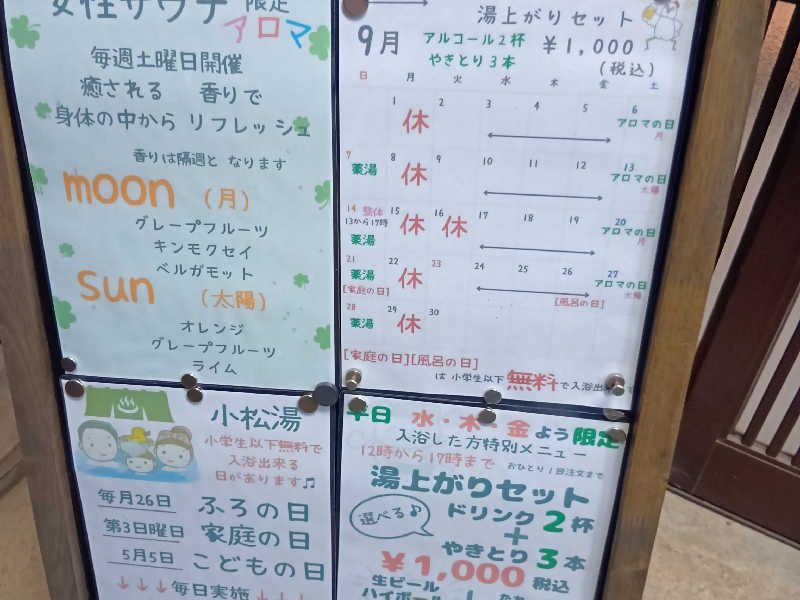 女性サウナ 限定
アロマ
毎週土曜日開催
癒される 香りで
身体の中から リフレッシュ
香りは隔週と なります
moon (月)
グレープフルーツ
キンモクセイ
ベルガモット
sun (太陽)
オレンジ
グレープフルーツ
ライム
湯上がりセット
9月 アルコール2杯 ¥1,000
やきとり3本 (税込)
日 月 火 水 木 金 土
1 休 2 3 4 5 6 アロマの日 月
7 薬湯 8 休 9 10 11 12 13 アロマの日 太陽
14 整体 13から17時 薬湯 15 休 16 休 17 18 19 20 アロマの日 月
21 薬湯 [家庭の日] 22 休 23 24 25 26 [風呂の日] 27 アロマの日 太陽
28 薬湯 29 休 30
[家庭の日][風呂の日]
は 小学生以下 無料で入浴出来
小松湯
小学生以下無料で
入浴出来る
日があります♫
毎月26日 ふろの日
第3日曜日 家庭の日
5月5日 こどもの日
↓↓↓毎日実施↓↓↓
平日 水・木・金よう限定
入浴した方特別メニュー
12時から17時まで おひとり1回注文まで
湯上がりセット
選べる♪ ドリンク2杯
+
やきとり3本
¥1,000 税込
生ビール
ハイボール